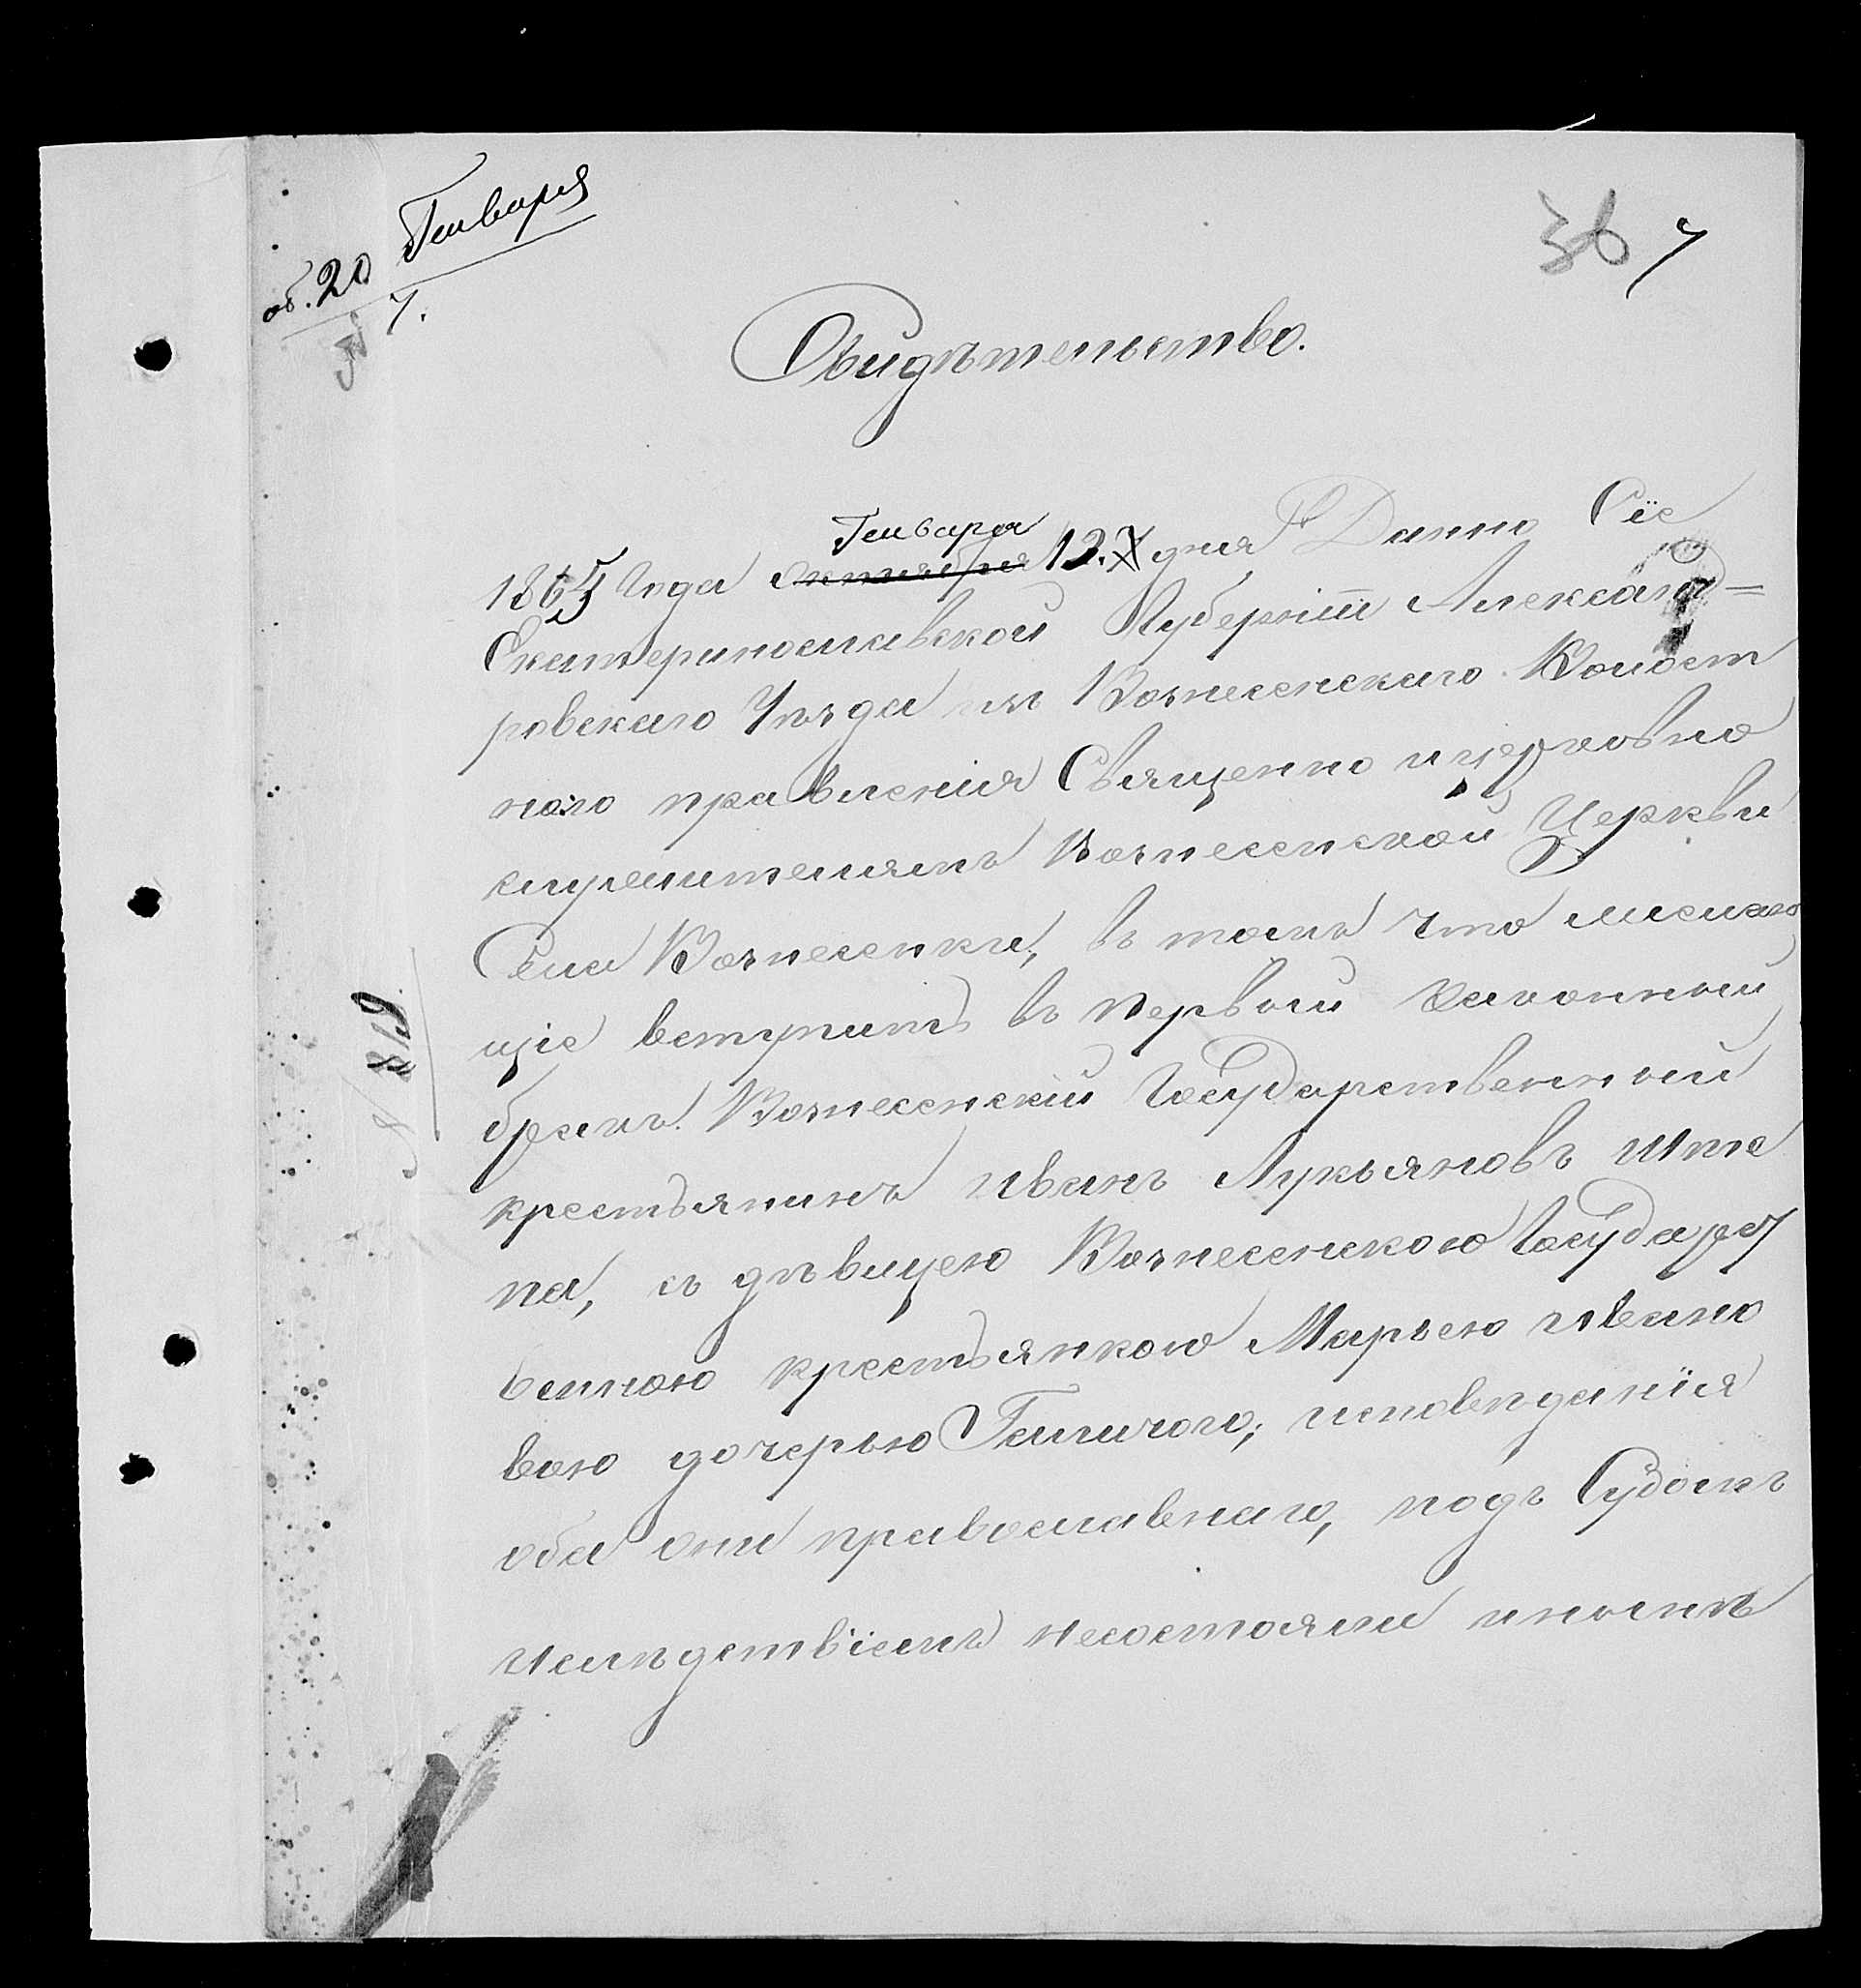 об. 20 Генваря
7.
36 7
Свидѣтельство.
Генваря
1865 Года октября 13. дня Данно Сіе
Екатеринославской Губерніи Александ=
ровскаго Уѣзда изъ Вознесенскаго Волост
ного правленія Священно и церковно
служителямъ Вознесенской Церкви
Села Вознесенки, въ томъ что желаю
щіе вступить въ первый законный
бракъ. Вознесенскій Государственный
крестьянинъ иванъ Лукьяновъ Шпе
па, съ дѣвицею Вознесенскою Государст
венною крестьянкою Марьею ивано
вою дочерью исповѣданія
оба они православнаго, подъ Судомъ
ислѣдствіемъ несостояли инынѣ
№ 819.